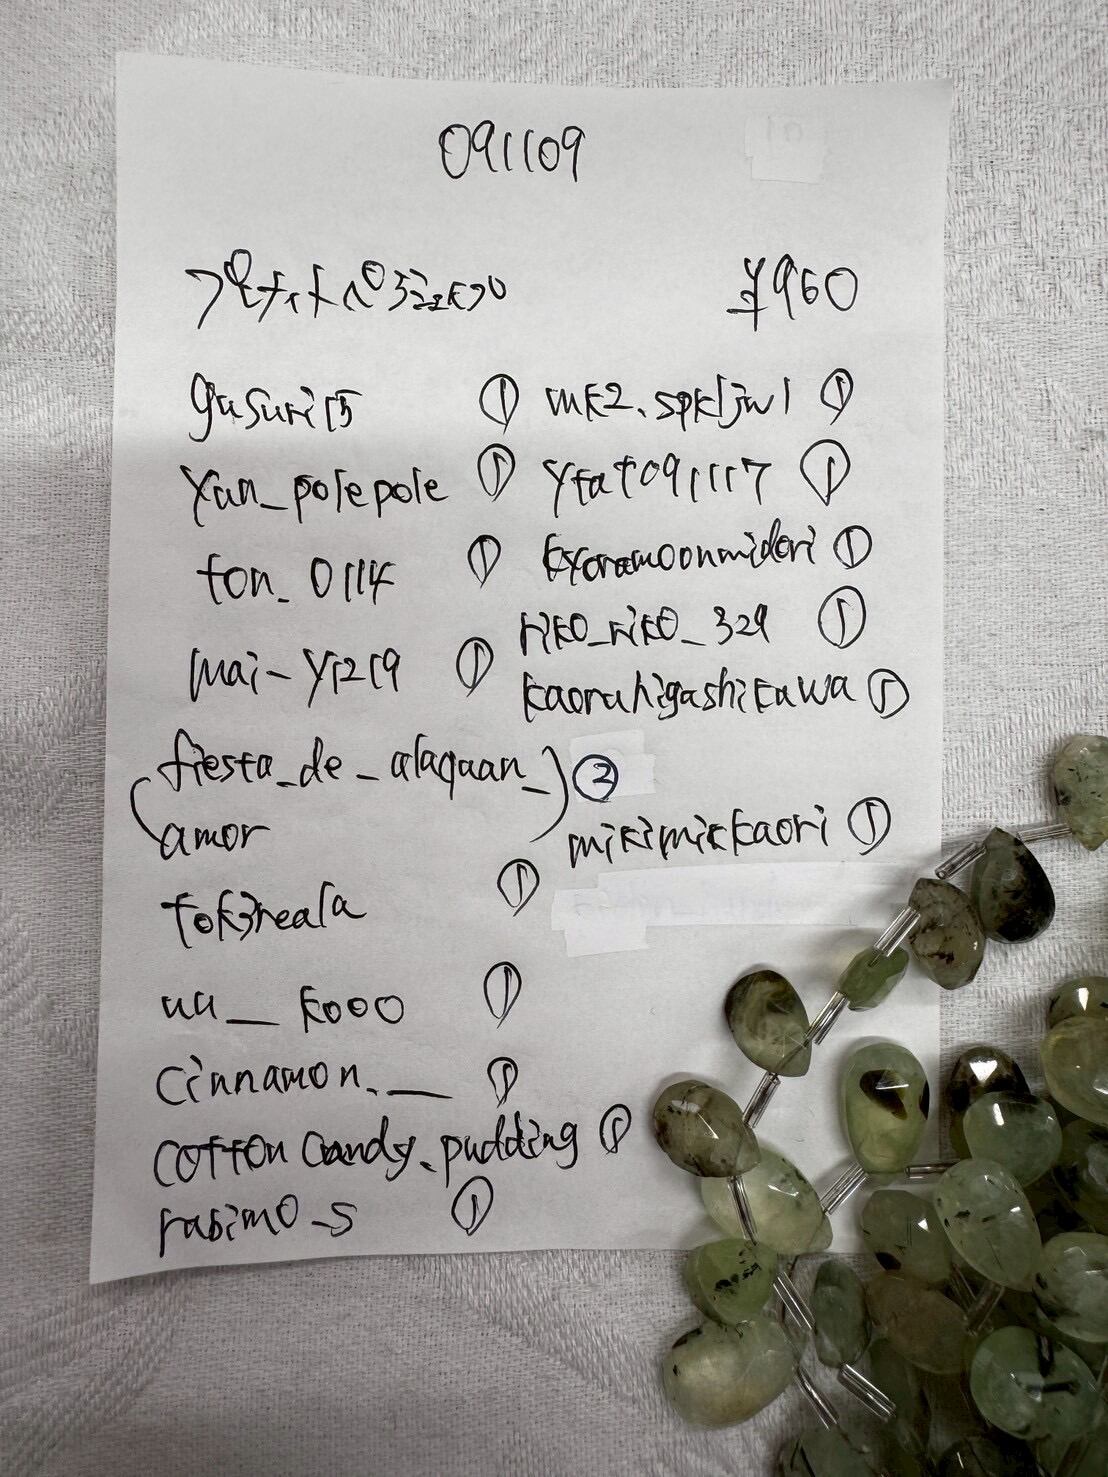 091109
¥960
gasuri15 ①
yun_polepole ①
ton_0114 ①
mai_y1219 ①
(fiesta_de_alaquan_
amor) ②
①
uu__kooo ①
cinnamon.__ ①
cottoncandy.pudding ①
rabimo_s ①
mk2.spkljw1 ①
ytat091117 ①
kyoramoonmidori ①
riko_riko_329 ①
kaoruhigashikawa ①
mikimikkaori ①